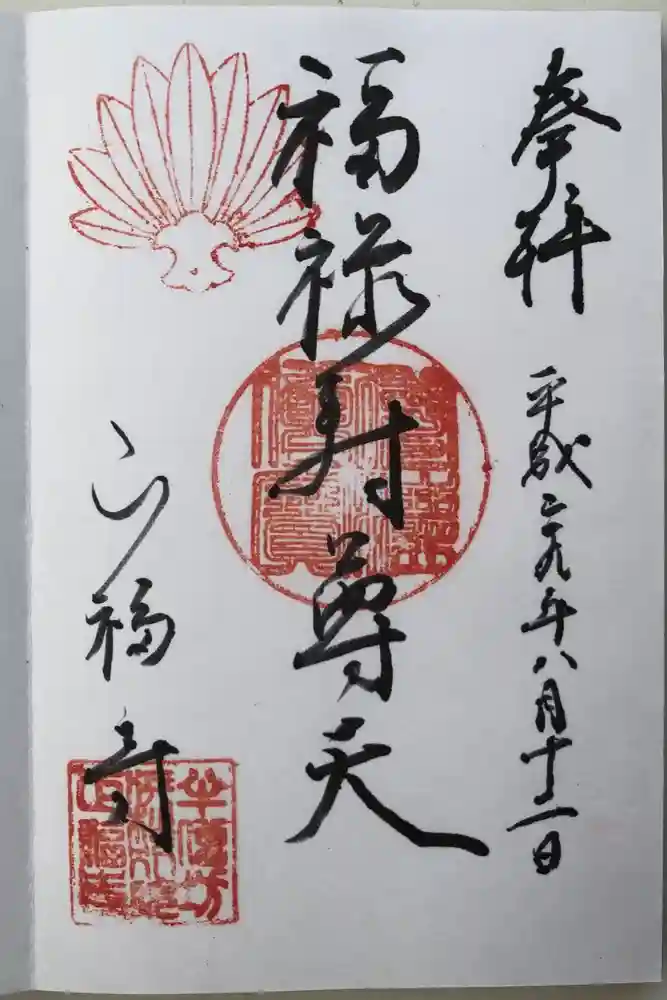 奉拝
平成二九年八月十二日
福禄寿尊天
正福寺